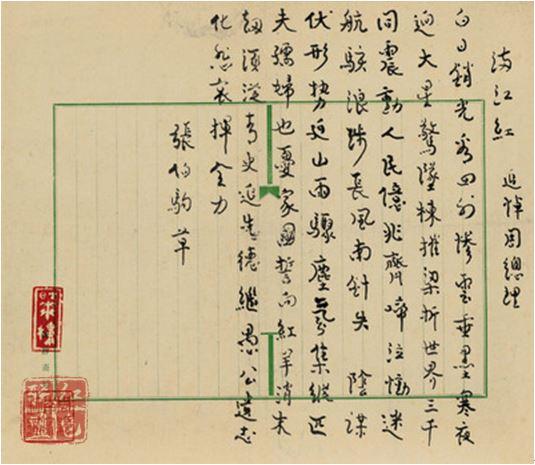 满江紅 追悼周總理
白日銷光看四外慘雲垂墨寒夜
迥大星驚墜棟摧梁折世界三千
同震動人民億兆齊啼泣慟迷
航駭浪涉長風南針失 陰謀
伏形勢山雨驟塵氛集縱匹
夫孺婦也憂家國誓向紅羊消末
劫須從青史延先德繼愚公遺志
化悲哀揮全力
張伯駒草